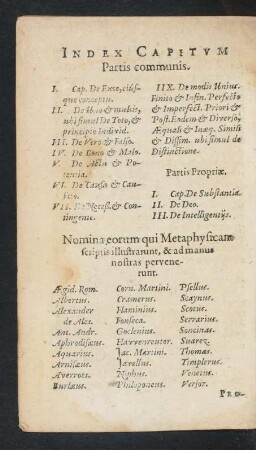 INDEX CAPITVM
Partis communis.
I. Cap. De Ente, eius-
que conceptu.
II. De Uno & multis,
ubi simul De Toto, &
principio Individ.
III. De Vero & Falso.
IV. De Bono & Malo.
V. De Actu & Po-
tentia.
VI. De Causa & Cau-
sato.
VII. De Necess. & Con-
tingente.
IIX. De modis Unius.
Finito & Infin. Perfecto
& Imperfect. Priori &
Post. Eodem & Diverso,
Æquali & Inæq. Simili
& Dissim. ubi simul de
Distinctione.
Partis Propriæ.
I. Cap. De Substantia.
II. De Deo.
III. De Intelligentijs.
Nomina eorum qui Metaphysicam
scriptis illustrarunt, & ad manus
nostras pervene-
runt.
Ægid. Rom.
Albertus.
Alexander
de Ales.
Ant. Andr.
Aphrodisæus.
Aquarius.
Arnisæus.
Averroes.
Burlæus.
Corn. Martini.
Cramerus.
Flaminius.
Fonseca.
Goclenius.
Havvenreuter.
Jac. Martini.
Javellus.
Niphus.
Philoponus.
Psellus.
Scaynus.
Scotus.
Serrarius.
Soncinas.
Suarez.
Thomas.
Timplerus.
Venetus.
Versor.